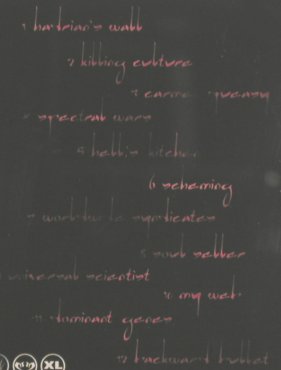 1 hadrian's wall
2 killing culture
3 queasy
4 spectral wars
5 hell's kitchen
6 scheming
7 syndicates
8 soul seller
9 universal scientist
10 my web
11 dominant genes
12 backward bullet
XL